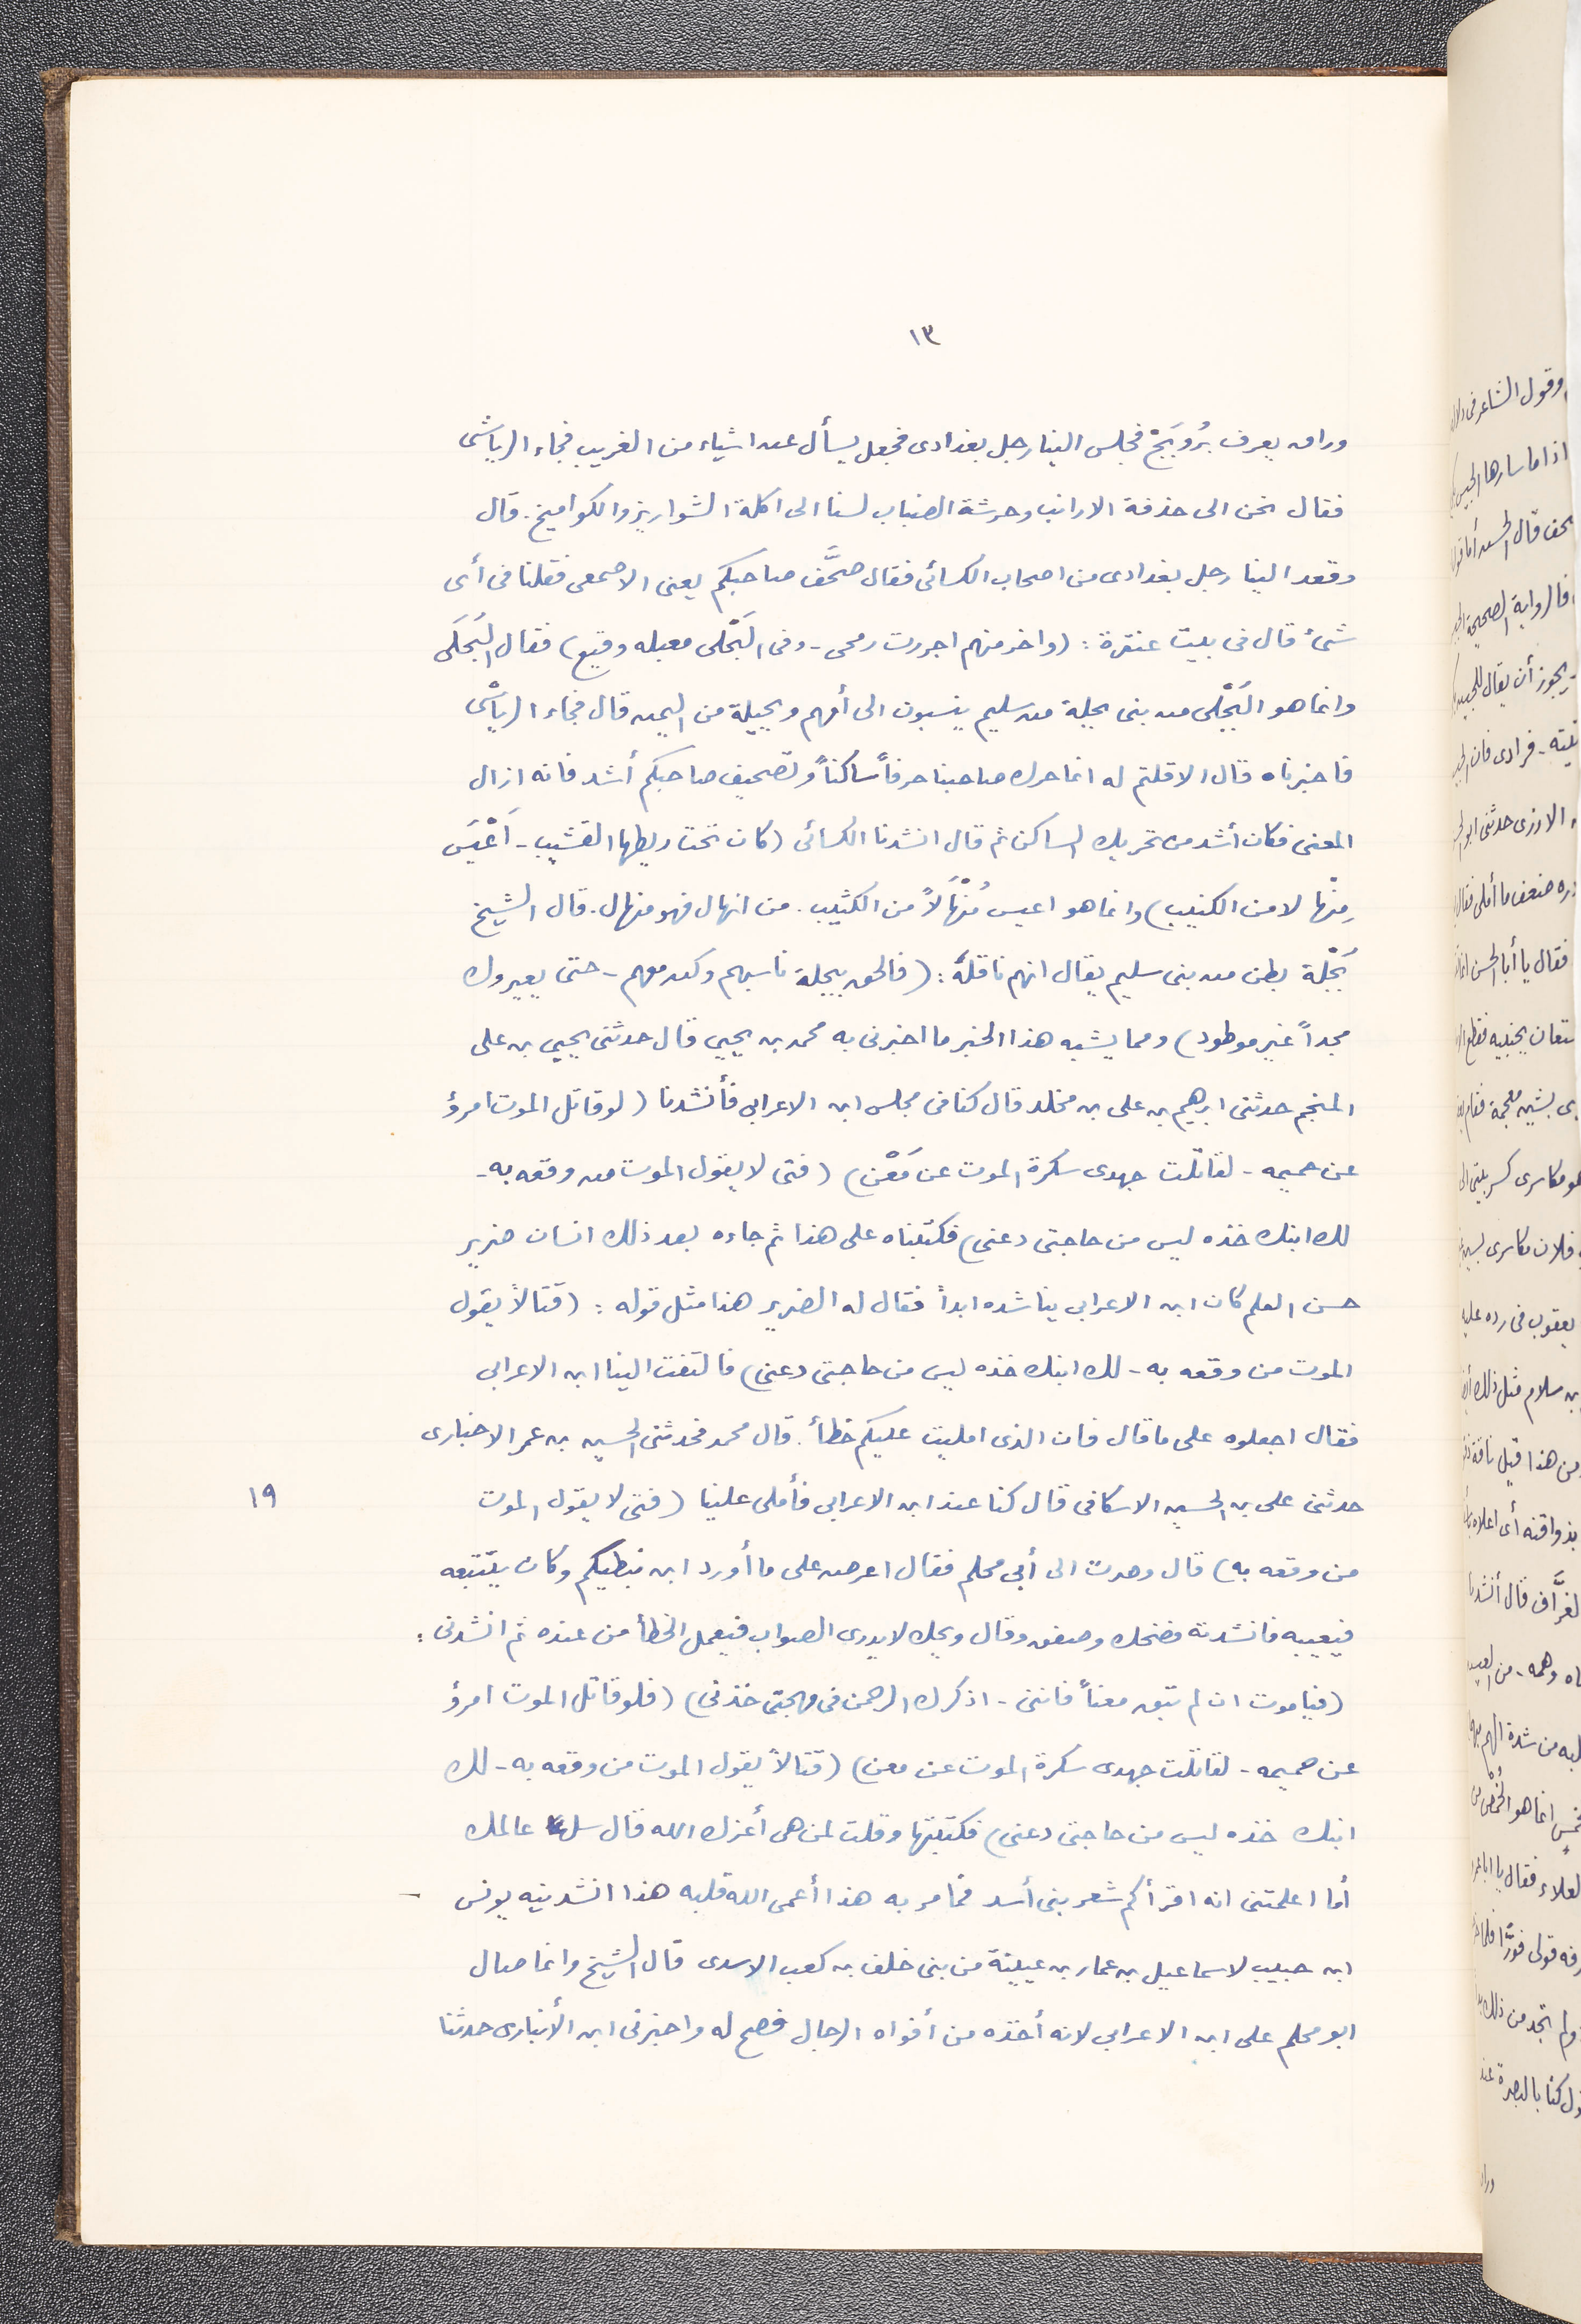 ١٣
وراق يعرف بُرُوَيَجْ فجلس الينا رجل بغدادى فجعل يسأل عن اشياء من الغريب فجاء الرياشى
فقال نحن الى حذفة الارانب وحرشة الضباب لسنا الى اكلة الشواريز والكواميخ. قال
وقعد الينا رجل بغدادى من اصحاب الكسائى فقال صحَّف صاحبكم يعنى الاصمعى فقلنا فى أى
شئ قال فى بيت عنترة: (واخر منهم اجررت رمحى - وفى البَجْلى معبله وقيع) فقال البُجَلَى
وانما هو البَجْلى من بنى بجلة من سليم ينسبون الى أمهم وبجيلة من اليمن قال فجاء الرياشى
فاخبرناه قال الا قلتم له انما حرك صاحبنا حرفاً ساكناً وتصحيف صاحبكم أشد فانه ازال
المعنى فكان أشد من تحريك الساكن ثم قال انشدنا الكسائى (كان تحت ريطها القشيب - اَعْيَس
مِنْها لا من الكثيب) وانما هو اعيس مُنْهَالاً من الكثيب. من انهال فهو منهال. قال الشيخ
بَجْلة بطن من بنى سليم يقال انهم ناقلةٌ: (فالحق ببجلة ناسبهم وكن معهم - حتى يعيروك
مجداً غير موطود) ومما يشبه هذا الخبر ما اخبرنى به محمد بن يحيى قال حدثنى يحيى بن على
المنجم حدثنى ابرهيم بن على بن مخلد قال كنا فى مجلس ابن الاعرابى فأنشدنا (لو قاتل الموت امرؤ
عن حميمه - لقاتلت جهدى سكرة الموت عن مَعْن) (فتى لا يقول الموت من وقعه به -
لك ابنك خذه ليس من حاجتى دعنى) فكتبناه على هذا ثم جاءه بعد ذلك انسان ضرير
حسن العلم كان ابن الاعرابى يناشده ابداً فقال له الضرير هذا مثل قوله: (قتالاً يقول
الموت من وقعه به - لك ابنك خذه ليس من حاجتى دعنى) فالتفت الينا ابن الاعرابى
فقال اجعلوه على ما قال فان الذى امليت عليكم خطأ. قال محمد فحدثنى الحسين بن عمر الاخبارى
١٩
حدثنى على بن الحسين الاسكافى قال كنا عند ابن الاعرابى فأملى علينا (فتى لا يقول الموت
من وقعه به) قال وصرت الى أبى محلم فقال اعرض على ما أورد ابن نبطيكم وكان يتتبعه
فيعيبه فانشدته فضحك وصفق وقال ويحك لا يدرى الصواب فيعمل الخطأ من عنده ثم انشدنى:
(فيا موت ان لم تبق معناً فاننى - اذكرك الرحمن فى مهجتى خذنى) (فلو قاتل الموت امرؤ
عن حميمه - لقاتلت جهدى سكرة الموت عن معن) (قتالاً يقول الموت من وقعه به - لك
ابنك خذه ليس من حاجتى دعنى) فكتبتها وقلت لمن هى أعزك الله قال سل عالمك
أما اعلمتنى انه اقرأكم شعر بنى أسد فما مر به هذا أعمى الله قلبه هذا انشدنيه يونس
ابن حبيب لاسماعيل بن عمار بن عيينة من بنى خلف بن كعب الاسدى قال الشيخ وانما صال
ابو محلم على ابن الاعرابى لانه أخذه من أفواه الرجال فصح له واخبرنى ابن الأنبارى حدثنا
وقول الشاعر فى
اذا ما سارها
قال الحسن أما
فالرواية الصحيحة
يجوز أن يقال
- فرادى فان
الازدى حدثنى ابو
ضعف ما أملى فقال
فقال يا أبا الحسن انما
بشين معجمة فقام
يعقوب فى رده عليه
بن سلام مثل ذلك
من هذا قيل ناقة
أى اعلاه
قال أنشدنا
من شدة الهم
انما هو
العلاء فقال يا ابا عمرو
ولم تجد من ذلك
كنا بالبصرة عند